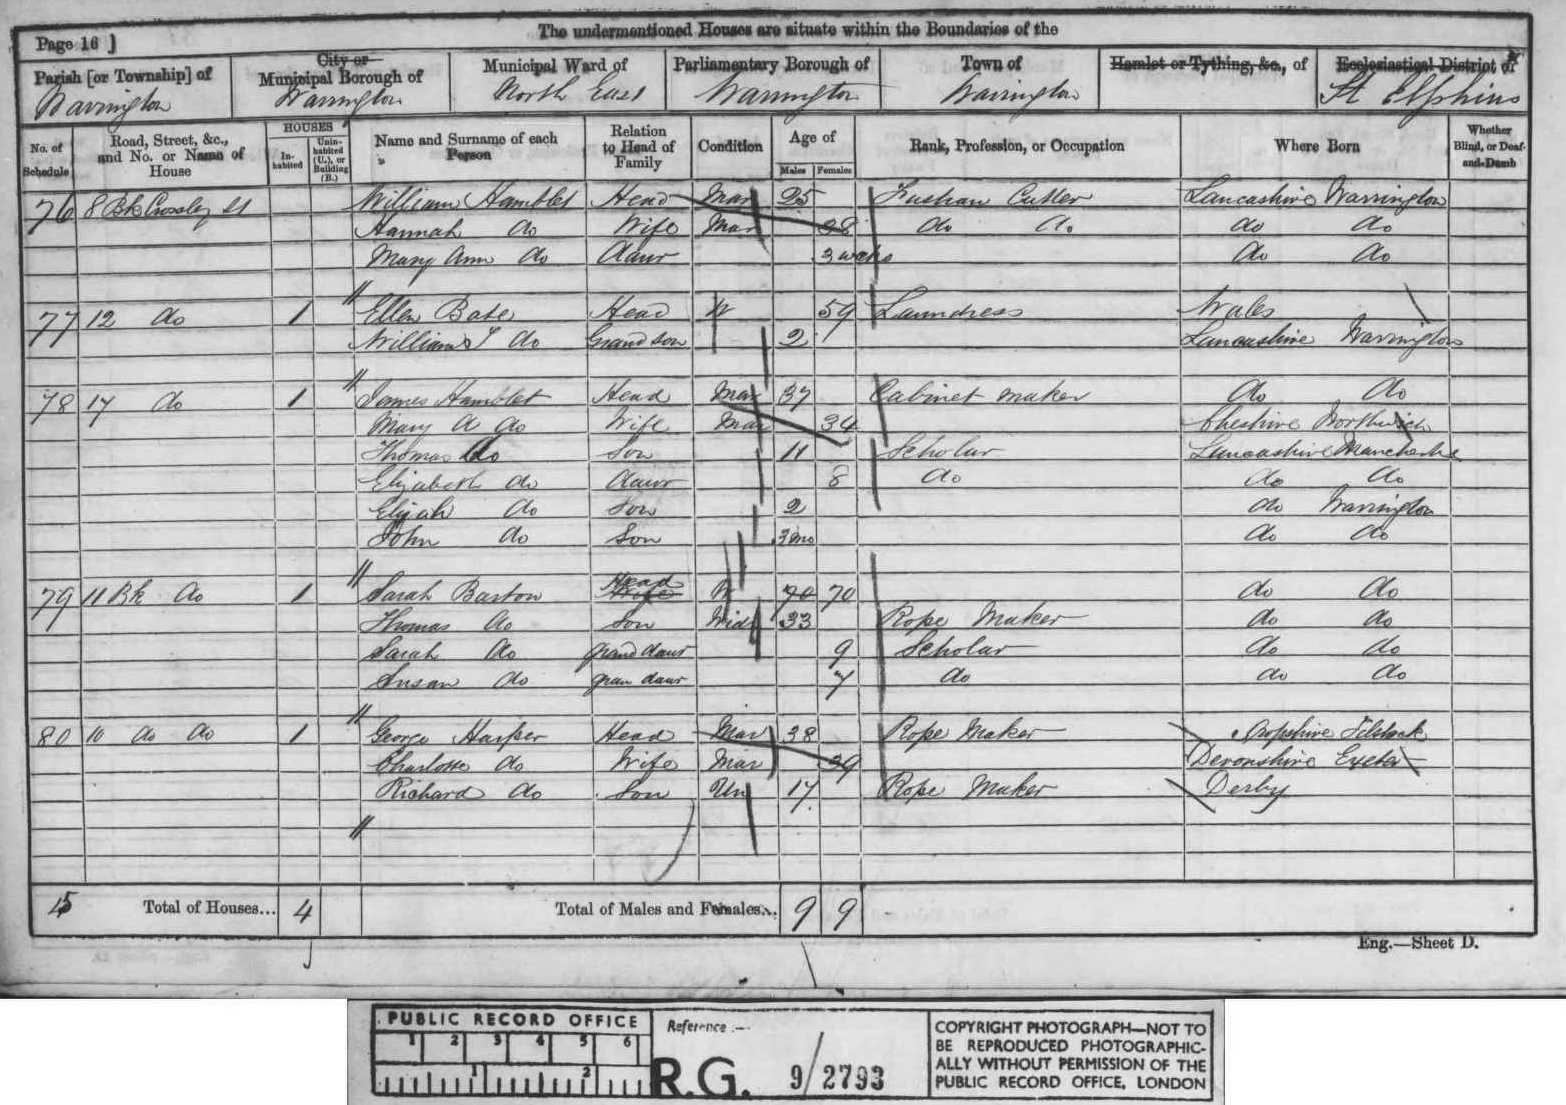 The undermentioned Houses are situate within the Boundaries of the
Page 16 ]
Parish [or Township] of
Warrington
City or
Municipal Borough of
Warrington
Municipal Ward of
North East
Parliamentary Borough of
Warrington
Town of
Warrington
Hamlet or Tything, &c., of
Ecclesiastical District of
St Elphins
No. of Schedule
Road, Street, &c., and No. or Name of House
HOUSES
In-habited
Unin-habited (U.), or Building (B.)
Name and Surname of each Person
Relation to Head of Family
Condition
Age of
Males
Females
Rank, Profession, or Occupation
Where Born
Whether Blind, or Deaf-and-Dumb
76 8 Bk Crossley St William Hamblet Head Mar 25 Fustian Cutter Lancashire Warrington
Hannah do Wife Mar 28 do do do do
Mary Ann do daur 3 weeks do do
77 12 do 1 Ellen Bate Head W 59 Laundress Wales
William do Grandson 2 Lancashire Warrington
78 17 do 1 James Hamblet Head Mar 37 Cabinet maker do do
Mary A do Wife Mar 34 Cheshire Northwich
Thomas do Son 11 Scholar Lancashire Manchester
Elizabeth do daur 8 do do do
Elijah do Son 2 do Warrington
John do Son 3 mo do do
79 11 Bk do 1 Sarah Barton Head Wife W 70 70 do do
Thomas do Son Wid 33 Rope Maker do do
Sarah do grand daur 9 Scholar do do
Susan do gran daur 7 do do do
80 10 do do 1 George Harper Head Mar 38 Rope Maker Tilstock
Charlotte do Wife Mar 39 Devonshire Exeter
Richard do Son Un 17 Rope Maker Derby
Total of Houses... 4
Total of Males and Females... 9 9
Eng.—Sheet D.
PUBLIC RECORD OFFICE
1 2 3 4 5 6
1 2
Reference :-
R.G. 9/2793
COPYRIGHT PHOTOGRAPH—NOT TO
BE REPRODUCED PHOTOGRAPHIC-
ALLY WITHOUT PERMISSION OF THE
PUBLIC RECORD OFFICE, LONDON